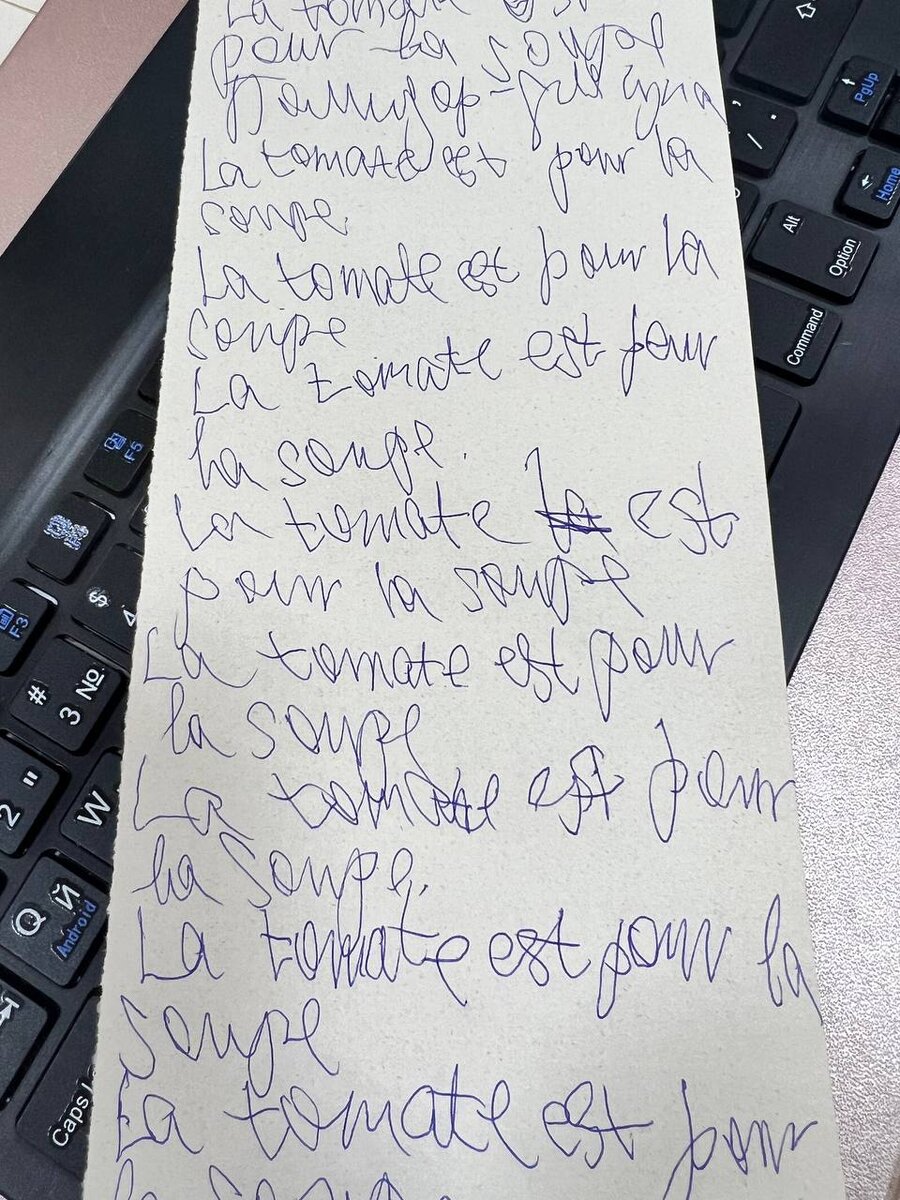 La tomate est
pour la soupe
Помидор - для супа
La tomate est pour la
soupe.
La tomate est pour la
soupe
La tomate est pour
la soupe.
La tomate est
pour la soupe
La tomate est pour
la soupe
La tomate est pour
la soupe.
La tomate est pour la
soupe
La tomate est pour
la soupe
PgUp
Home
Alt
Option
Command
F5
F3
$
4
#
3 №
2 "
W
Q Й
Android
Caps